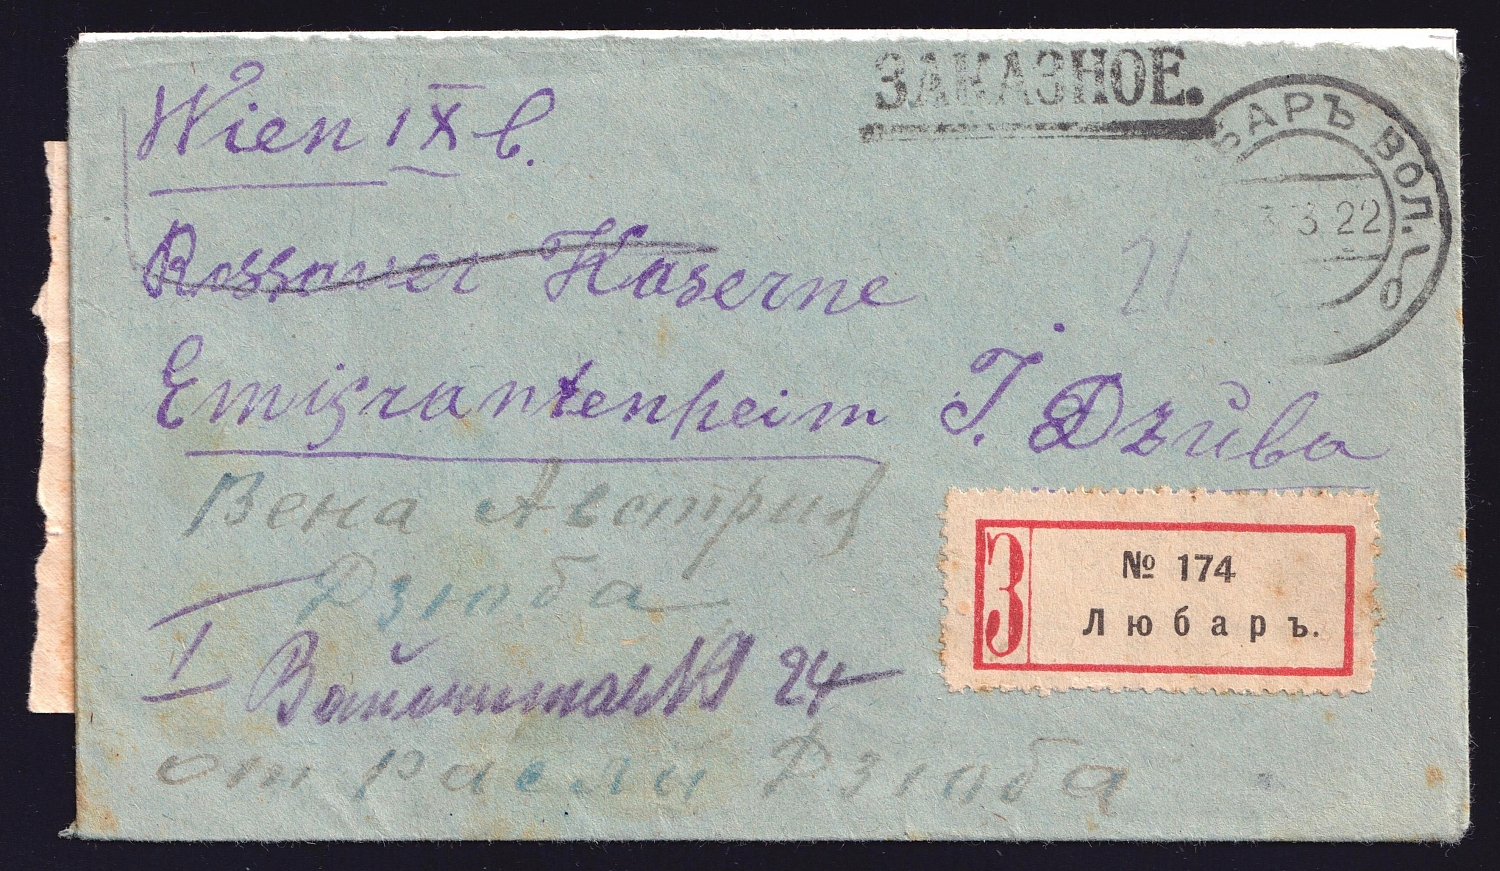 ЗАКАЗНОЕ.
БАРЪ ВОЛ.
3 3 22
Wien IX b.
Rossauer Kaserne
21
Emigrantenheim J. Dzûba
Вена Австрия
Дзюба
№ 174
З
Любаръ.
I № 24
от Расли Дзюба